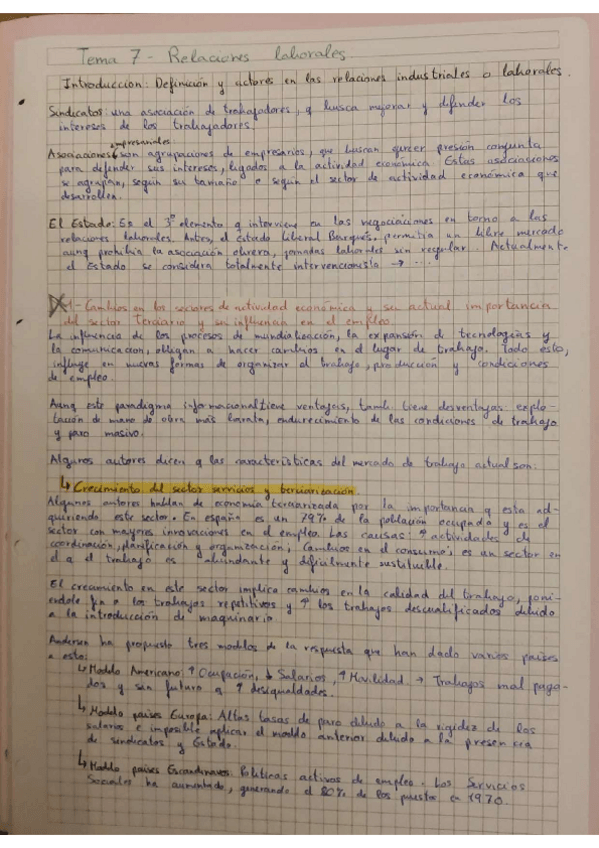 Tema 7 - Relaciones laborales
Introducción: Definición y actores en las relaciones industriales o laborales.
Sindicatos: una asociación de trabajadores, q busca mejorar y difender los
intereses de los trabajadores.
empresariales
Asociaciones son agrupaciones de empresarios, que buscan ejercer presión conjunta
para defender sus intereses, ligados a la actividad económica. Estas asociaciones
se agrupan, según su tamaño o según el sector de actividad económica que
desarrollen.
El Estado: Es el 3er elemento q interviene en las negociaciones en torno a las
relaciones laborales. Antes, el estado Liberal Burgués, permitía un libre mercado
aunq prohibía la asociación obrera, jornadas laborales sin regular. Actualmente
el Estado se considera totalmente intervencionista → ...
1- Cambios en los sectores de actividad económica y su actual importancia
del sector Terciario y su influencia en el empleo.
La influencia de los procesos de mundialización, la expansión de tecnologías y
la comunicación, obligan a hacer cambios en el lugar de trabajo. Todo esto,
influye en nuevas formas de organizar el trabajo, producción y condiciones
de empleo.
Aunq este paradigma informacional tiene ventajas, tamb. tiene desventajas: explo-
tación de mano de obra más barata, endurecimiento de las condiciones de trabajo
y paro masivo.
Algunos autores dicen q las características del mercado de trabajo actual son:
↳ Crecimiento del sector servicios y terciarización
Algunos autores hablan de economía terciarizada por la importancia q esta ad-
quiriendo este sector. En españa es un 79% de la población ocupada y es el
sector con mayores innovaciones en el empleo. Las causas: ↑ actividades de
coordinación, planificación y organización; Cambios en el consumo; es un sector en
el q el trabajo es abundante y dificilmente sustituible.
El crecimiento en este sector implica cambios en la calidad del trabajo, poni-
endole fin a los trabajos repetitivos y ↑ los trabajos descualificados debido
a la introducción de maquinaria.
Andersen ha propuesto tres modelos de la respuesta que han dado varios países
a esto:
↳ Modelo Americano: ↑ Ocupación, ↓ Salarios, ↑ Movilidad → Trabajos mal paga-
dos y sin futuro q ↑ desigualdades.
↳ Modelo países Europa: Altas tasas de paro debido a la rigidez de los
salarios e imposible aplicar el modelo anterior debido a la presencia
de sindicatos y Estado.
↳ Modelo países Escandinavos: Políticas activas de empleo. Los Servicios
Sociales ha aumentado, generando el 80% de los puestos en 1970.